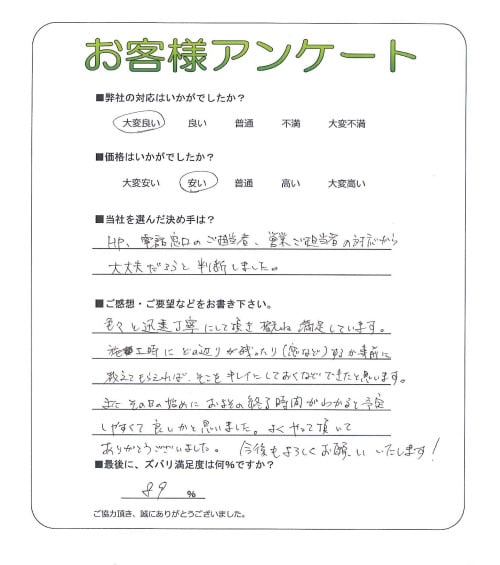 お客様アンケート
■弊社の対応はいかがでしたか?
大変良い 良い 普通 不満 大変不満
■価格はいかがでしたか?
大変安い 安い 普通 高い 大変高い
■当社を選んだ決め手は?
HP、電話窓口のご担当者、営業ご担当者の対応から
大丈夫だろうと判断しました。
■ご感想・ご要望などをお書き下さい。
色々と迅速丁寧にして頂き概ね満足しています。
施工時にどの辺りが残ったり(窓など)するか事前に
教えてもらえれば、そこをキレイにしておくなどできたと思います。
またその日の始めにおよその終了時間がわかると予定
しやすくて良いかと思いました。よくやって頂いて
ありがとうございました。 今後もよろしくお願いいたします!
■最後に、ズバリ満足度は何%ですか?
89 %
ご協力頂き、誠にありがとうございました。